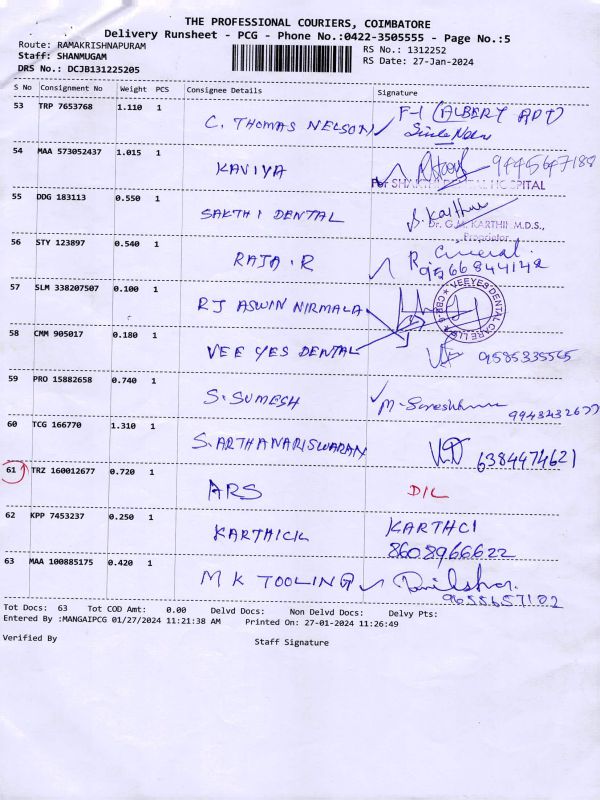 THE PROFESSIONAL COURIERS, COIMBATORE
Delivery Runsheet - PCG - Phone No.:0422-3505555 - Page No.:5
Route: RAMAKRISHNAPURAM RS No.: 1312252
Staff: SHANMUGAM RS Date: 27-Jan-2024
DRS No.: DCJB131225205
S No Consignment No Weight PCS Consignee Details Signature
53 TRP 7653768 1.110 1 C. THOMAS NELSON F-1 (ALBERT APT)
54 MAA 573052437 1.015 1 KAVIYA 9445647188
For SHAKTHI DENTAL HOSPITAL
55 DDG 183113 0.550 1 SAKTHI DENTAL S Karthi
Dr. G.M. KARTHI M.D.S.,
Proprietor
56 STY 123897 0.540 1 RAJA.R
9566844142
57 SLM 338207507 0.100 1 RJ ASWIN NIRMALA VEEYES DENTAL CARE CBE
58 CMM 905017 0.180 1 VEE YES DENTAL 9585335565
59 PRO 15882658 0.740 1 S. SUMESH 9943432677
60 TCG 166770 1.310 1 S. ARTHANARISWARAN 6384474621
61 TRZ 160012677 0.720 1 ARS D/L
62 KPP 7453237 0.250 1 KARTHICK KARTHCI
8608966622
63 MAA 100885175 0.420 1 M K TOOLING
9655657102
Tot Docs: 63 Tot COD Amt: 0.00 Delvd Docs: Non Delvd Docs: Delvy Pts:
Entered By :MANGAIPCG 01/27/2024 11:21:38 AM Printed On: 27-01-2024 11:26:49
Verified By Staff Signature